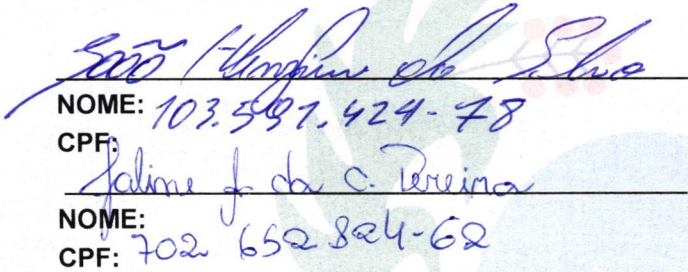 João da Silva
NOME: 103.591.424-78
CPF:
Jaline f. da C. Pereira
NOME:
CPF: 702 652 824-62